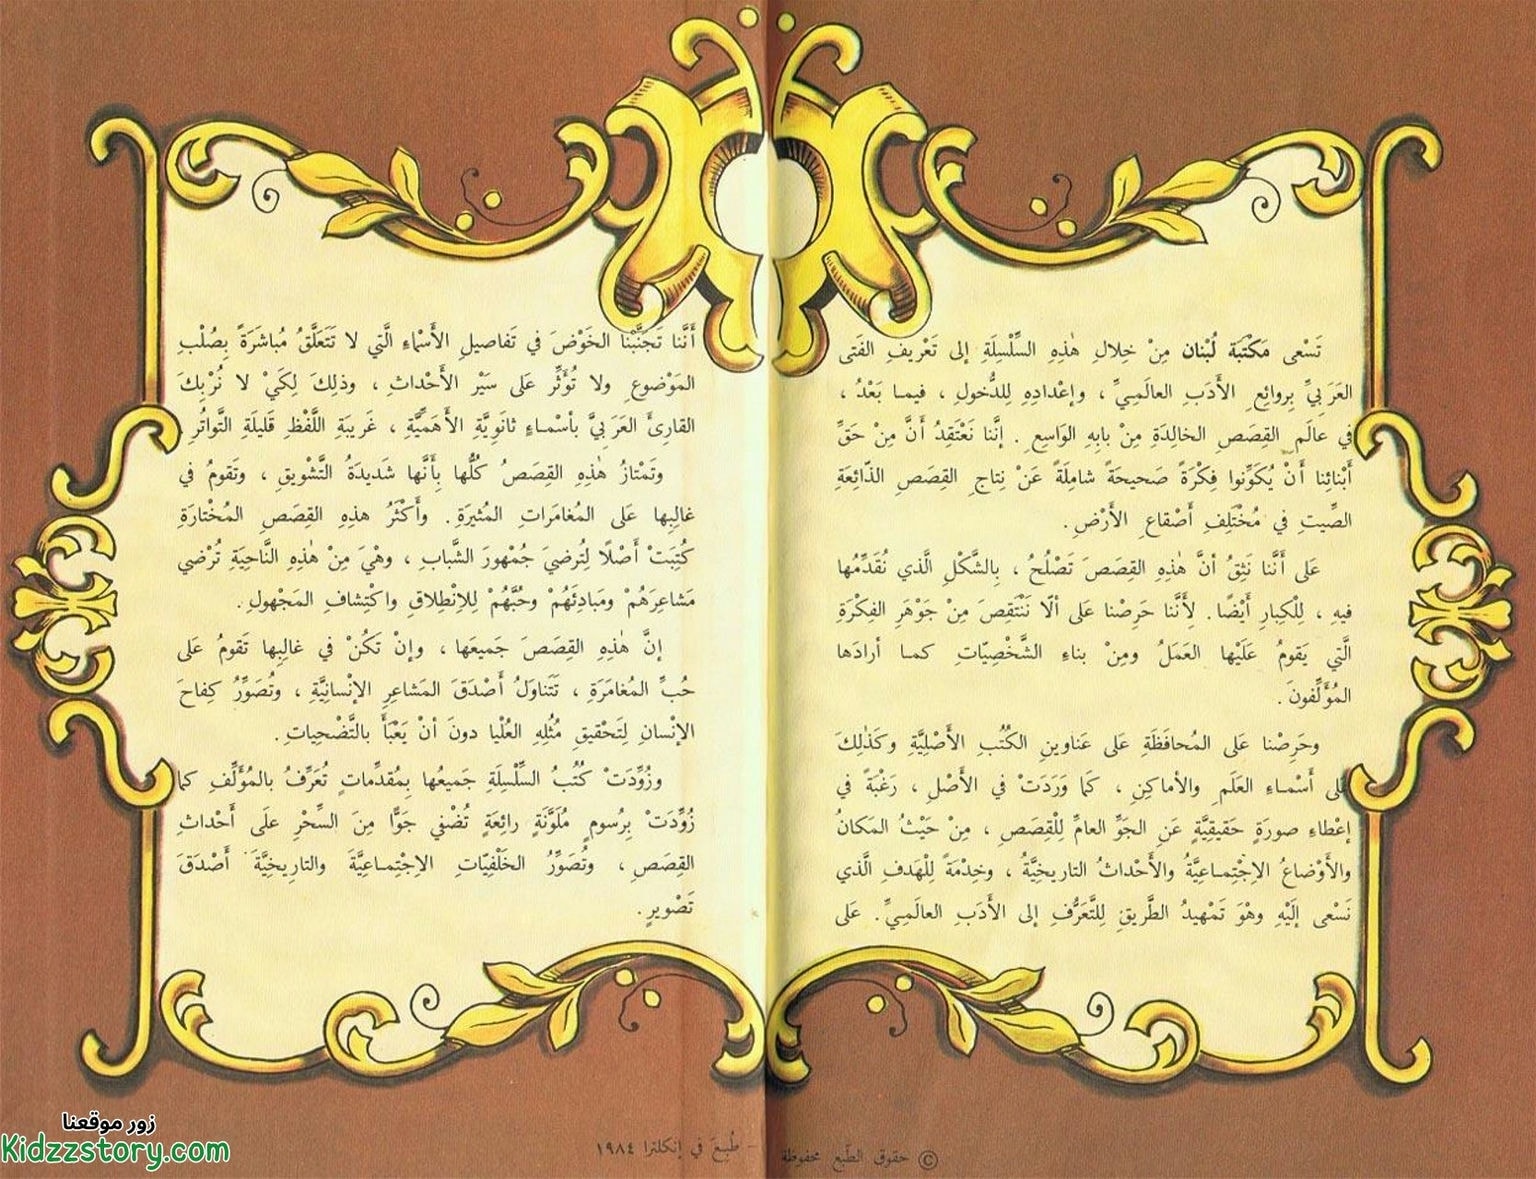 تَسْعى مَكْتَبَة لُبْنان مِنْ خِلالِ هٰذِهِ السِّلْسِلَةِ إلى تَعْريفِ الفَتى
العَرَبِيِّ بِروائِعِ الأَدَبِ العالَمِيِّ ، وإعْدادِهِ لِلدُّخولِ ، فيما بَعْدُ ،
في عالَمِ القِصَصِ الخالِدَةِ مِنْ بابِهِ الوَاسِعِ . إنَّنا نَعْتَقِدُ أَنَّ مِنْ حَقِّ
أَبْنائِنا أَنْ يُكَوِّنوا فِكْرَةً صَحيحَةً شامِلَةً عَنْ نِتاجِ القِصَصِ الذّائِعَةِ
الصِّيتِ في مُخْتَلِفِ أَصْقاعِ الأَرْضِ .
عَلى أَنَّنا نَثِقُ أنَّ هٰذِهِ القِصَصَ تَصْلُحُ ، بِالشَّكْلِ الَّذي نُقَدِّمُها
فيهِ ، لِلْكِبارِ أَيْضًا . لِأَنَّنا حَرِصْنا عَلى ألّا نَنْتَقِصَ مِنْ جَوْهَرِ الفِكْرَةِ
الَّتي يَقومُ عَلَيْها العَمَلُ ومِنْ بناءِ الشَّخْصِيّاتِ كما أرادَها
المُؤَلِّفونَ .
وحَرِصْنا عَلى المُحافَظَةِ عَلى عَناوينِ الكُتُبِ الأَصْلِيَّةِ وكَذٰلِكَ
عَلى أَسْماءِ العَلَمِ والأماكِنِ ، كَما وَرَدَتْ في الأَصْلِ ، رَغْبَةً في
إعْطاءِ صورَةٍ حَقيقِيَّةٍ عَنِ الجَوِّ العامِّ لِلْقِصَصِ ، مِنْ حَيْثُ المَكانُ
والأَوْضاعُ الاِجْتِماعِيَّةُ والأَحْداثُ التاريخِيَّةُ ، وخِدْمَةً لِلْهَدفِ الَّذي
نَسْعى إلَيْهِ وهْوَ تَمْهيدُ الطَّريقِ لِلتَّعَرُّفِ إلى الأَدَبِ العالَمِيِّ . عَلى
أَنَّنا تَجَنَّبْنا الخَوْضَ في تَفاصيلِ الأَسْماءِ الَّتي لا تَتَعَلَّقُ مُباشَرَةً بِصُلْبِ
المَوْضوعِ ولا تُؤَثِّر عَلى سَيْر الأَحْداثِ ، وذٰلِكَ لِكَيْ لا نُرْبِكَ
القارِئَ العَرَبِيَّ بأسْماءٍ ثانَوِيَّةِ الأَهَمِّيَّةِ ، غَريبَةِ اللَّفْظِ قَليلَةِ التَّواتُرِ .
وتَمْتازُ هٰذِهِ القِصَصُ كُلُّها بِأَنَّها شَديدَةُ التَّشْويقِ ، وتَقومُ في
غالِبِها عَلى المُغامَراتِ المُثيرَةِ . وأَكْثَرُ هذِهِ القِصَصِ المُخْتارَةِ
كُتِبَتْ أَصْلًا لِتُرضيَ جُمْهورَ الشَّبابِ ، وهْيَ مِنْ هٰذِهِ النّاحِيَةِ تُرْضي
مَشاعِرَهُمْ ومَبادِئَهُمْ وحُبَّهُمْ لِلاِنْطِلاقِ واكْتِشافِ المَجْهولِ .
إنَّ هٰذِهِ القِصَصَ جَميعَها ، وإنْ تَكُنْ في غالِبِها تَقومُ عَلى
حُبِّ المُغامَرَةِ ، تَتَناوَلُ أَصْدَقَ المَشاعِرِ الإنْسانِيَّةِ ، وتُصَوِّرُ كِفاحَ
الإنْسانِ لِتَحْقيقِ مُثُلِهِ العُلْيا دونَ أنْ يَعْبَأَ بالتَّضْحِياتِ .
وزُوِّدَتْ كُتُبُ السِّلْسِلَةِ جَميعُها بِمُقدِّماتٍ تُعَرِّفُ بالمُؤَلِّفِ كما
زُوِّدَتْ بِرُسومٍ مُلَوَّنَةٍ رائِعَةٍ تُضْفي جَوًّا مِنَ السِّحْرِ عَلَى أَحْداثِ
القِصَصِ ، وتُصَوِّرُ الخَلْفِيّاتِ الاِجْتِماعِيَّةَ والتارِيخِيَّةَ أَصْدَقَ
تَصْويرٍ .
© حقوق الطّبع محفوظة – طُبِعَ في إنكلترا ١٩٨٤
زور موقعنا
Kidzzstory.com